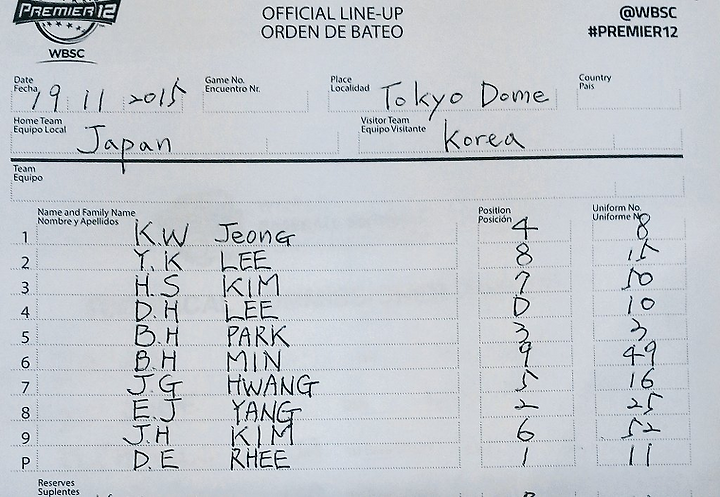 PREMIER 12
WBSC
OFFICIAL LINE-UP
ORDEN DE BATEO
@WBSC
#PREMIER12
Date
Fecha
19 11 2015
Game No.
Encuentro Nr.
Place
Localidad
Tokyo Dome
Country
País
Home Team
Equipo Local
Japan
Visitor Team
Equipo Visitante
Korea
Team
Equipo
Name and Family Name
Nombre y Apellidos
Position
Posición
Uniform No.
Uniforme N
1 K.W Jeong 4 8
2 Y.K LEE 8 15
3 H.S KIM 7 50
4 D.H LEE D 10
5 B.H PARK 3 3
6 B.H MIN 9 49
7 J.G HWANG 5 16
8 E.J YANG 2 25
9 J.H KIM 6 52
P D.E RHEE 1 11
Reserves
Suplentes